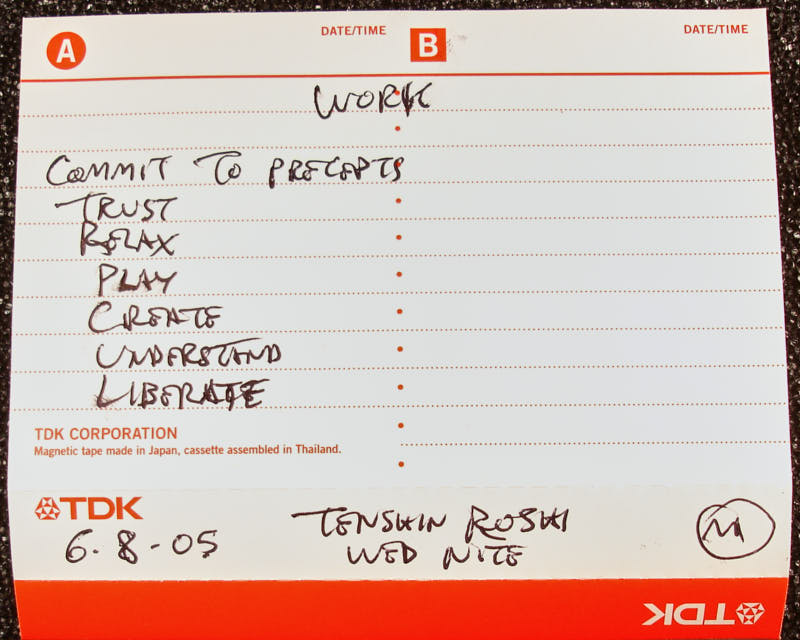 A DATE/TIME B DATE/TIME
WORK
COMMIT TO PRECEPTS
TRUST
RELAX
PLAY
CREATE
UNDERSTAND
LIBERATE
TDK CORPORATION
Magnetic tape made in Japan, cassette assembled in Thailand.
TDK
TENSHIN ROSHI
6.8-05
WED NITE
M
TDK